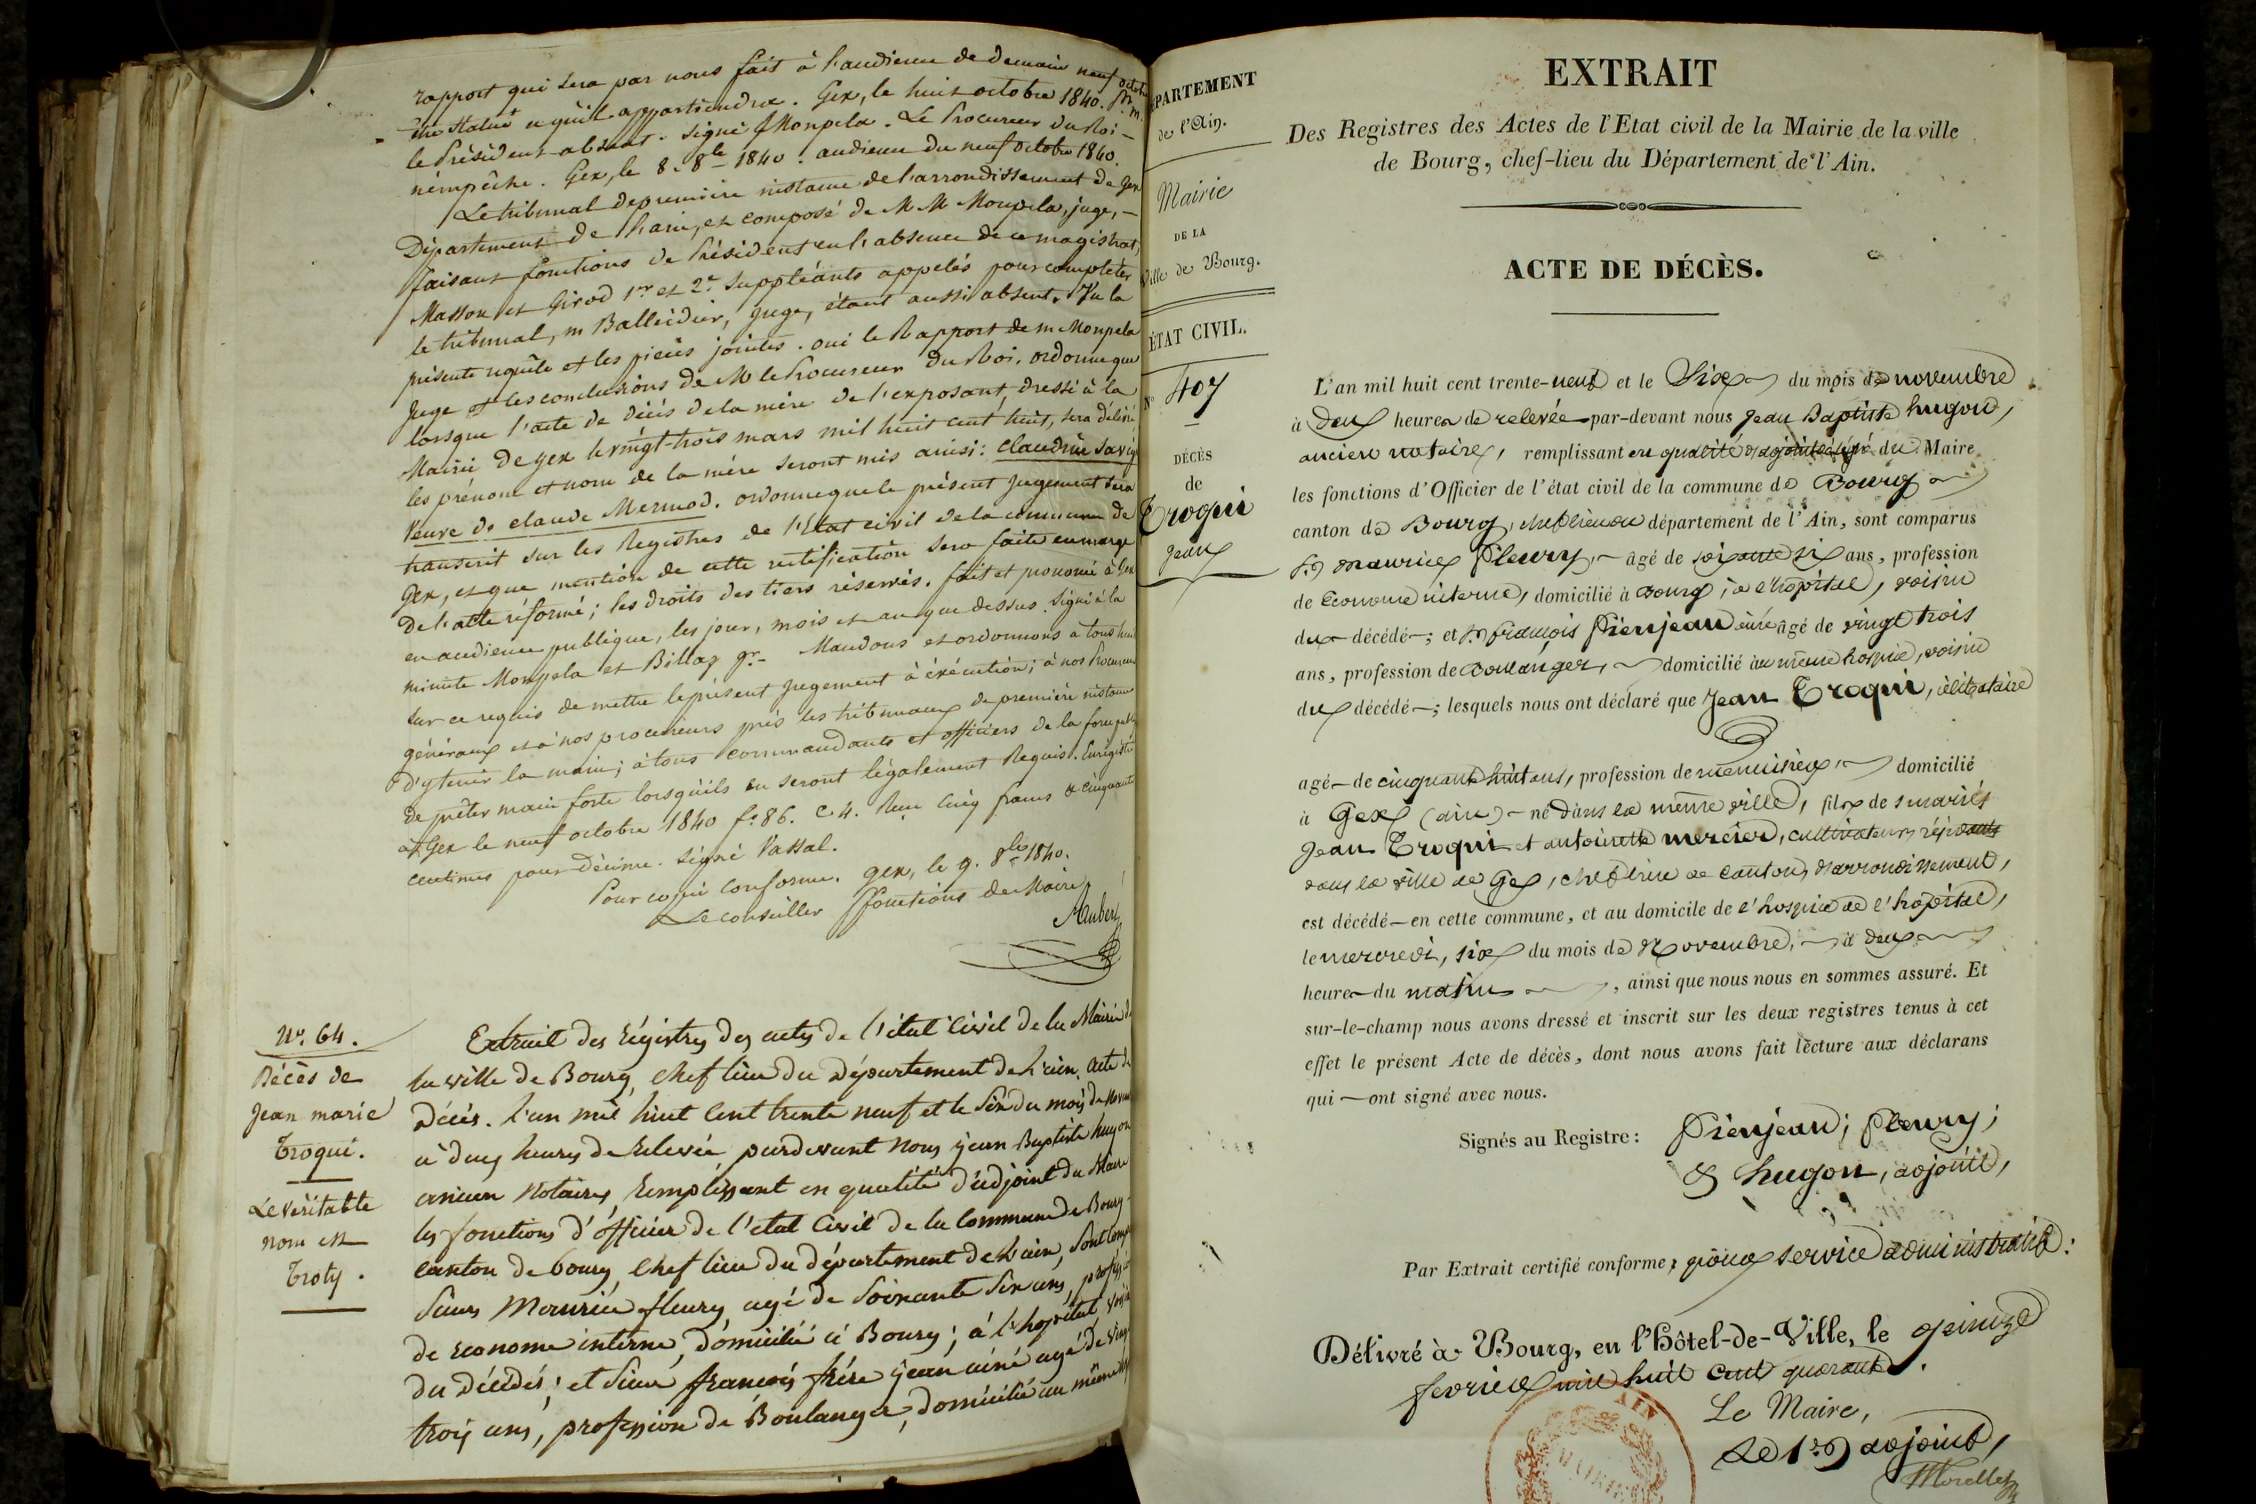 rapport qui sera par nous fait à l'audience de demain neuf octobre
être statué ce qu'il appartiendra. Gex, le huit octobre 1840. Pr. m.
le Président absent. signé Monpela. Le Procureur du Roi
n'empêche. Gex, le 8. 8bre 1840. audience du neuf octobre 1840.
Le tribunal de première instance de l'arrondissement de Gex
Département de l'ain, et composé de M M Monpela, juge,
faisant fonctions de Président en l'absence de ce magistrat,
Masson et Girod 1er et 2e suppléants appelés pour compléter
le tribunal, m Balleidier, juge, étant aussi absent. Vu la
présente requête et les pièces jointes. oui le Rapport de m Monpela
juge et les conclusions de M le Procureur du Roi. ordonne que
lorsque l'acte de décès de la mère de l'exposant, dressé à la
Mairie de gex le vingt-trois mars mil huit cent huit, sera délivré
les prénom et nom de la mère seront mis ainsi: Claudine Savigny
Veuve de Claude Mermod. ordonne que le présent jugement sera
transcrit sur les Registres de l'Etat civil de la commune de
Gex, et que mention de cette rectification sera faite en marge
de l'acte réformé; les droits des tiers réservés. fait et prononcé à Gex
en audience publique, les jour, mois et an que dessus. Signé à la
minute Monpela et Billaz gr. Mandons et ordonnons à tous huis
sur ce requis de mettre le présent jugement à éxécution; à nos Procureurs
généraux et à nos procureurs près les tribunaux de première instance
d'y tenir la main; à tous commandants et officiers de la force publ
de prêter main forte lorsqu'ils en seront légalement Requis. Enregistré
à Gex le neuf octobre 1840 fo. 86. C. 4. Reçu cinq francs & cinquante
centimes pour décime. Signé Vassal.
Pour copie conforme. gex, le 9. 8bre 1840.
Le conseiller ffonctions de Maire
Aubert
No. 64.
Décès de
Jean marie
Troqui.
Le véritable
nom est
Troty.
Extrait des régistres des actes de l'état civil de la Mairie de
la ville de Bourg, chef lieu du département de l'ain. acte de
décès. l'an mil huit cent trente neuf et le Six du mois de Novem
à deux heures de relevée pardevant nous jean Baptiste hugon
ancien Notaire, remplissant en qualité d'adjoint du Maire
les fonctions d'officier de l'etat Civil de la Commune de Bourg
canton de bourg, chef lieu du département de l'ain, sont comp
Sieurs Maurice fleury agé de Soixante Six ans, profession
de econome interne, domicilié à Bourg; à l'hopital, voisin
du décédé; et Sieur françois frére jean ainé agé de Vingt
trois ans, profession de Boulanger, domicilié au même
DÉPARTEMENT
de l'Ain.
Mairie
DE LA
Ville de Bourg.
ÉTAT CIVIL.
No 407
DÉCÈS
de
Troqui
Jean
EXTRAIT
Des Registres des Actes de l'Etat civil de la Mairie de la ville
de Bourg, chef-lieu du Département de l'Ain.
ACTE DE DÉCÈS.
L'an mil huit cent trente-neuf et le Six du mois de novembre
à deux heures de relevée par-devant nous Jean Baptiste hugon,
ancien notaire, remplissant en qualité d'adjoint délégué du Maire
les fonctions d'Officier de l'état civil de la commune de Bourg
canton de Bourg, chef lieu du département de l'Ain, sont comparus
Sr. maurice fleury, âgé de soixante six ans, profession
de Econome interne, domicilié à Bourg, à l'hopital, voisin
du décédé; et Sr. françois Pierrjean ainé âgé de vingt trois
ans, profession de boulanger, domicilié au même hospice, voisin
du décédé; lesquels nous ont déclaré que Jean Troqui, célibataire
agé de cinquante huit ans, profession de menuisier, domicilié
à Gex (ain) né dans la même ville, fils de s mariés
Jean Troqui et antoinette mercier, cultivateurs, résidants
dans la ville de Gex, chef lieu de canton, d'arrondissement,
est décédé en cette commune, et au domicile de l'hospice de l'hopital,
le mercredi, six du mois de Novembre, à deux
heures du matin, ainsi que nous nous en sommes assuré. Et
sur-le-champ nous avons dressé et inscrit sur les deux registres tenus à cet
effet le présent Acte de décès, dont nous avons fait lecture aux déclarans
qui ont signé avec nous.
Signés au Registre: Pierrjean; fleury;
& hugon, adjoint,
Par Extrait certifié conforme, pour service administratif:
Délivré à Bourg, en l'Hôtel-de-Ville, le quinze
fevrier mil huit cent quarante.
Le Maire,
Le 1er adjoint,
Morellet
AIN
MAIRIE